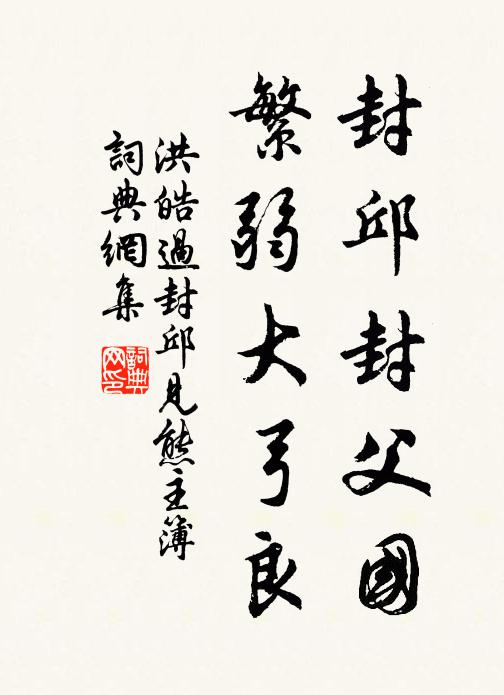 封邱封父國
繁弱大弓良
洪皓過封邱見熊主簿
詞典網集
詞典
网印